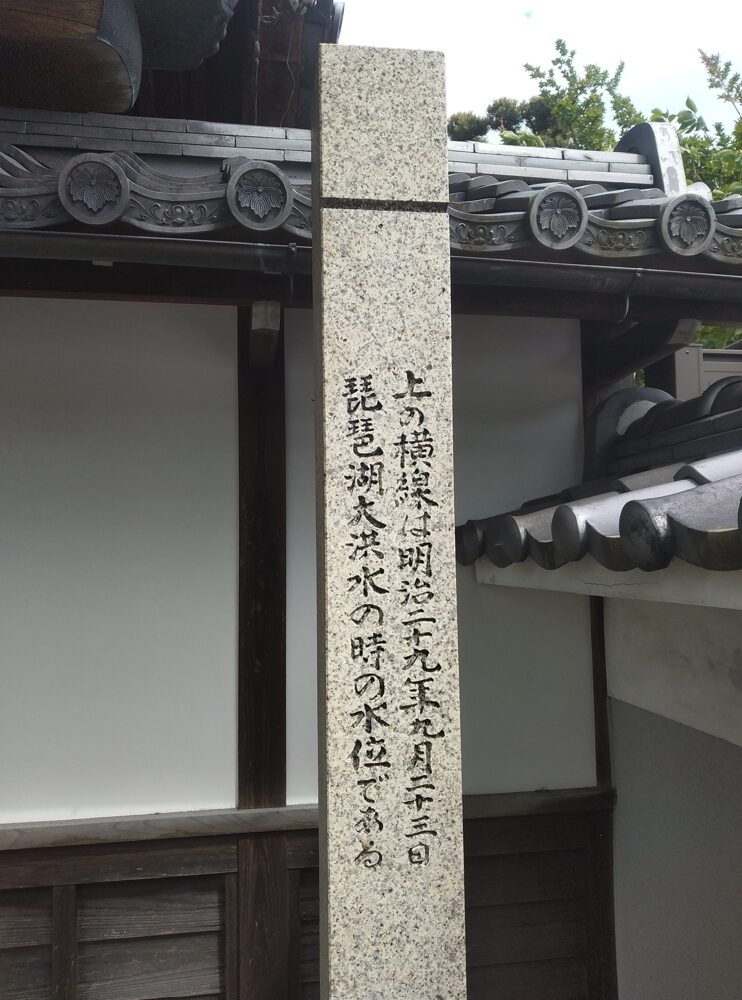 上の横線は明治二十九年九月二十三日
琵琶湖大洪水の時の水位である